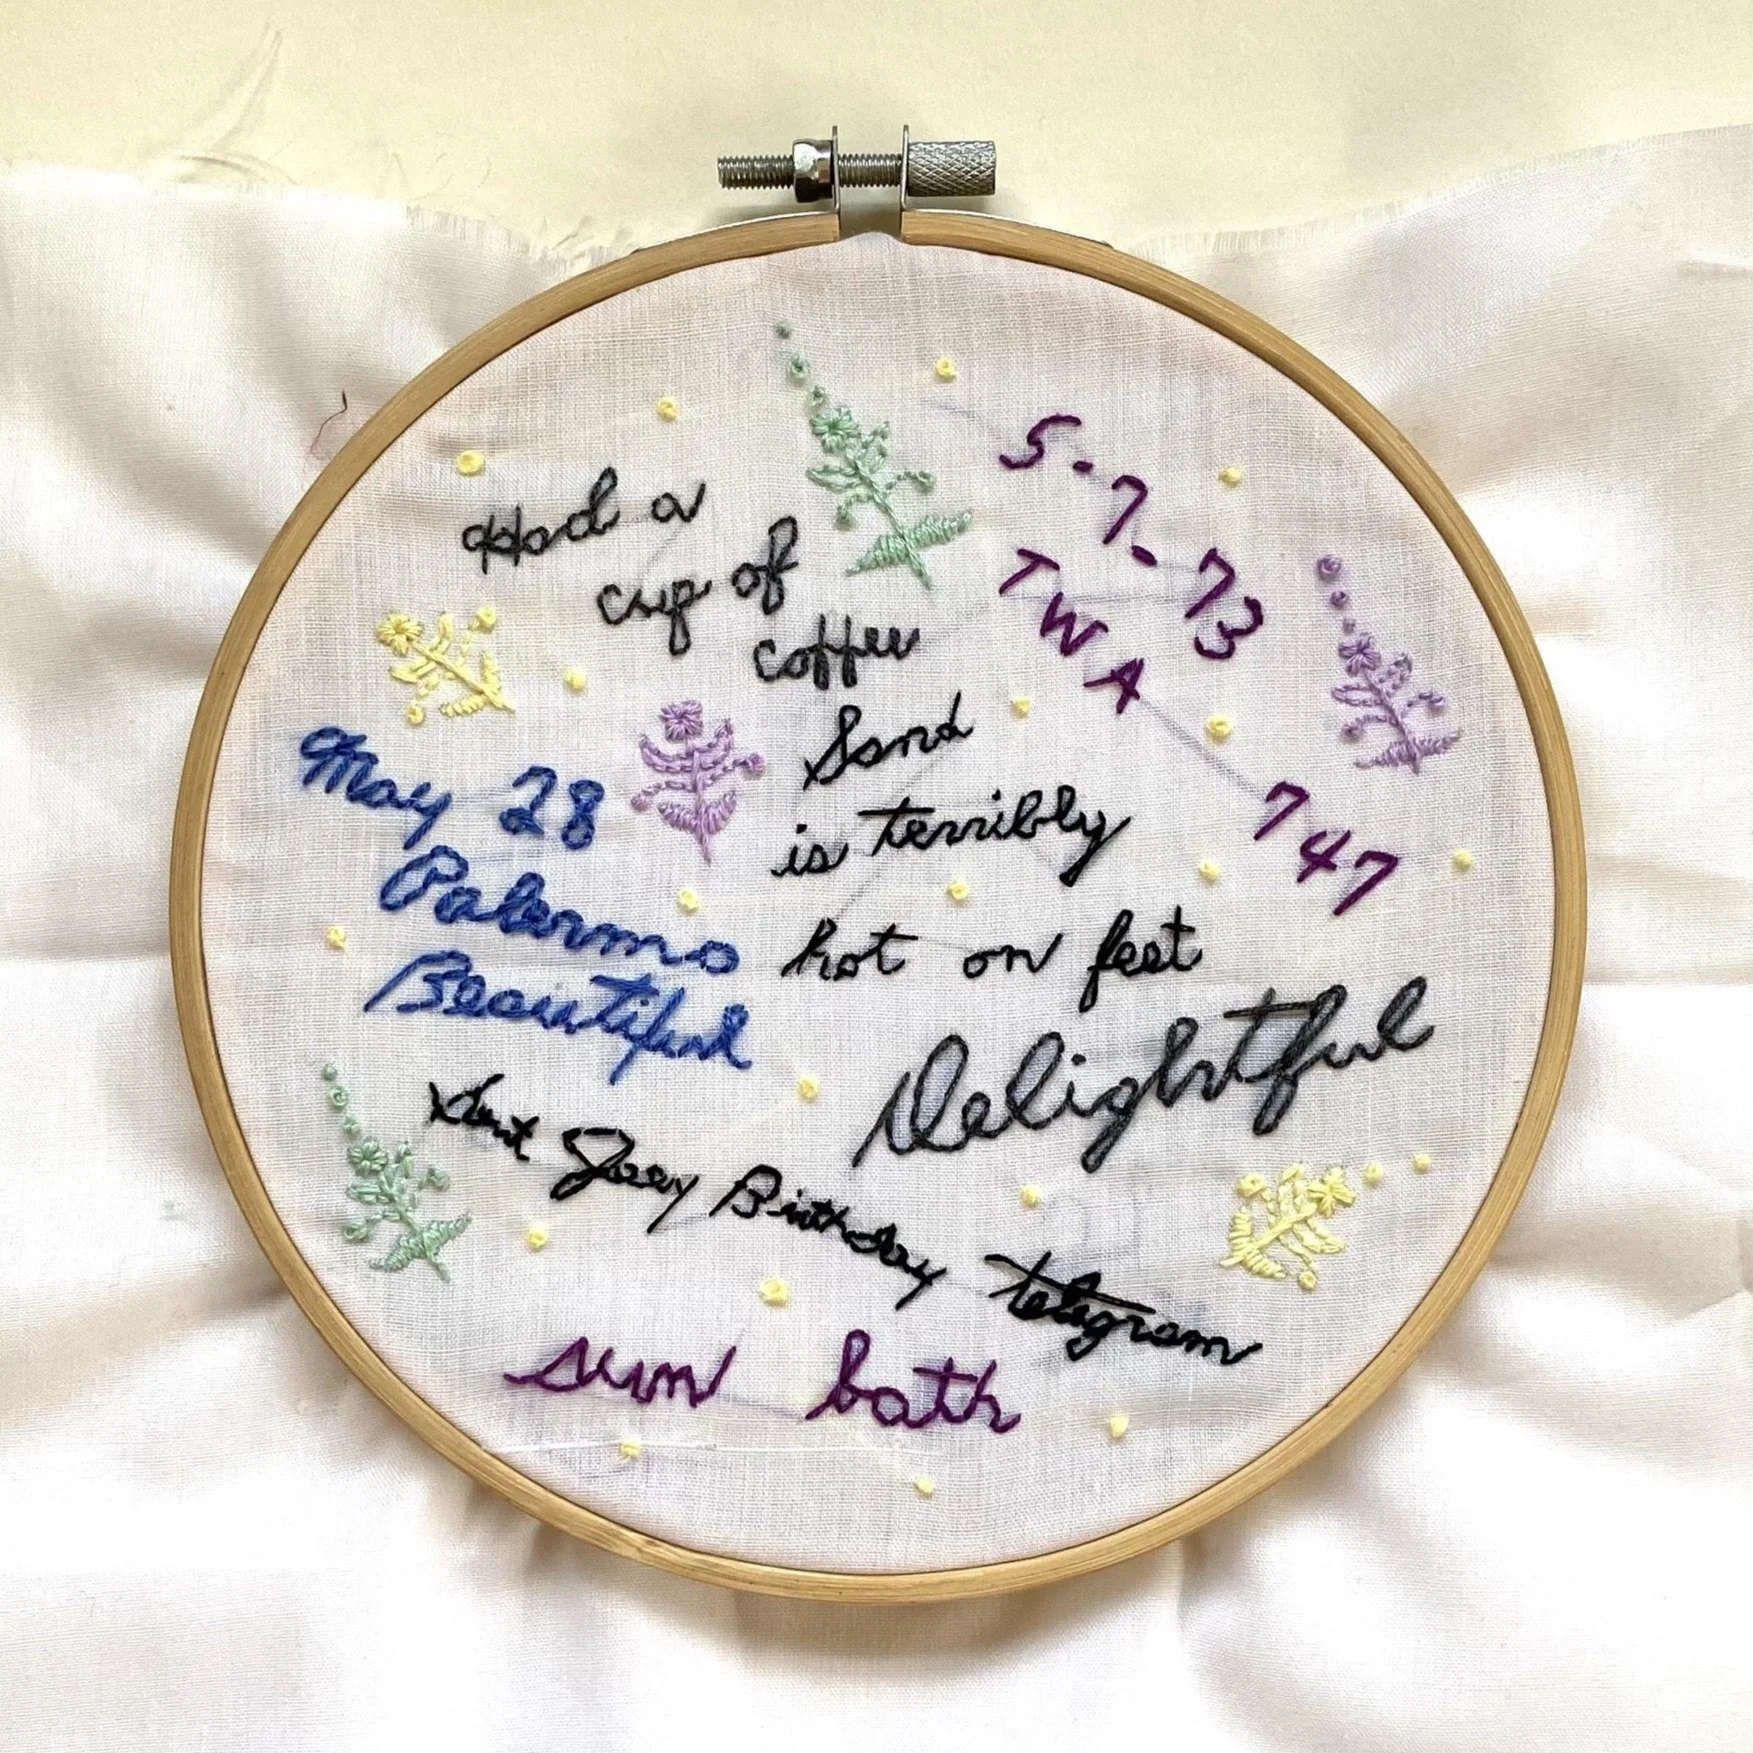 Had a
cup of
coffee
5-7-73
TWA
747
Sand
is terribly
hot on feet
May 28
Palermo
Beautiful
Delightful
Sent Joey Birthday telegram
sun bath